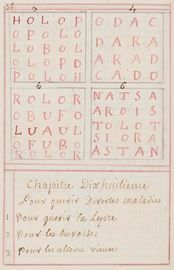 3 4
HOLOP
OPOLO
LOBOL
OLOPO
POLOH
ODAC
DARA
ARAD
CADO
5 6
ROLOR
OBUFO
LUAUL
OFUBO
ROLOR
NATSA
AROIS
TOLOT
SIORA
ASTAN
Chapitre Dixhuitieme
Pour guerir Diverses maladies
1 Pour guerir la Lepre
2 Pour les
3 Pour les ulceres vieux